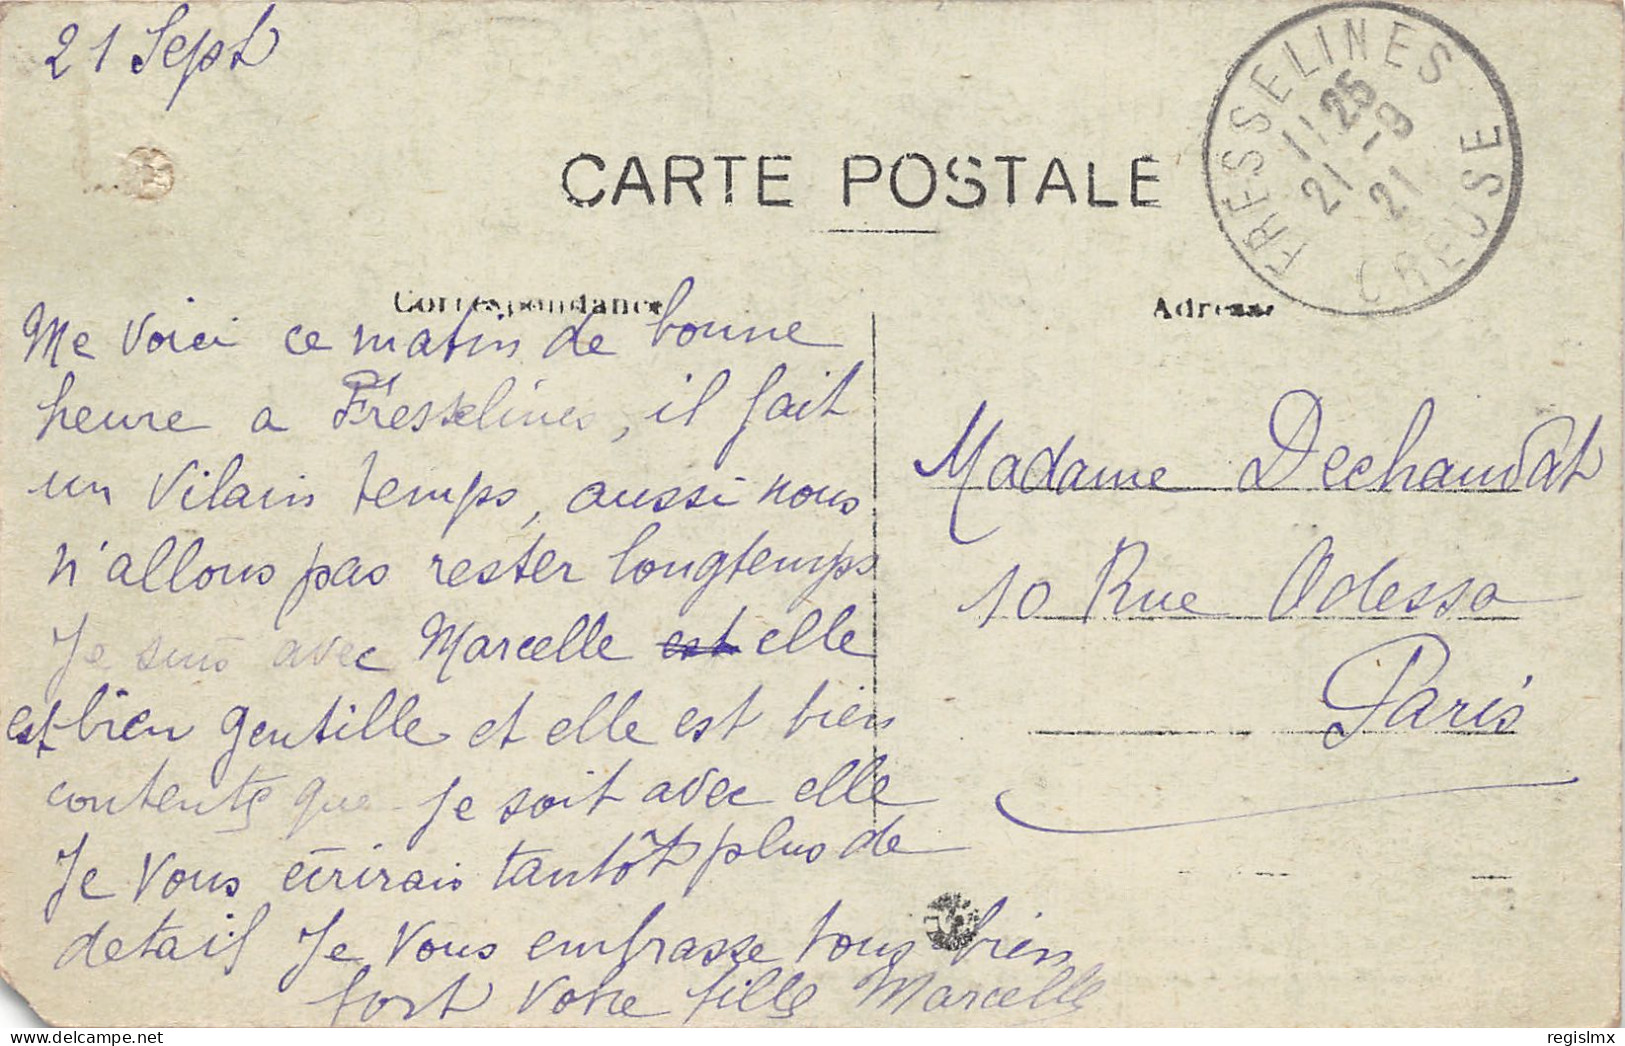 21 Sept
CARTE POSTALE
FRESSELINES
11 25
21 - 9
21
CREUSE
Correspondance
Adresse
Me voici ce matin de bonne
heure a Fresselines, il fait
un vilain temps, aussi nous
n'allons pas rester longtemps
Je suis avec Marcelle est elle
est bien gentille et elle est bien
contente que je soit avec elle
Je vous écrirais tantôt plus de
detail Je vous embrasse tous bien
fort votre fille Marcelle
Madame Dechaudat
10 Rue Odessa
Paris
regislmx
www.delcampe.net